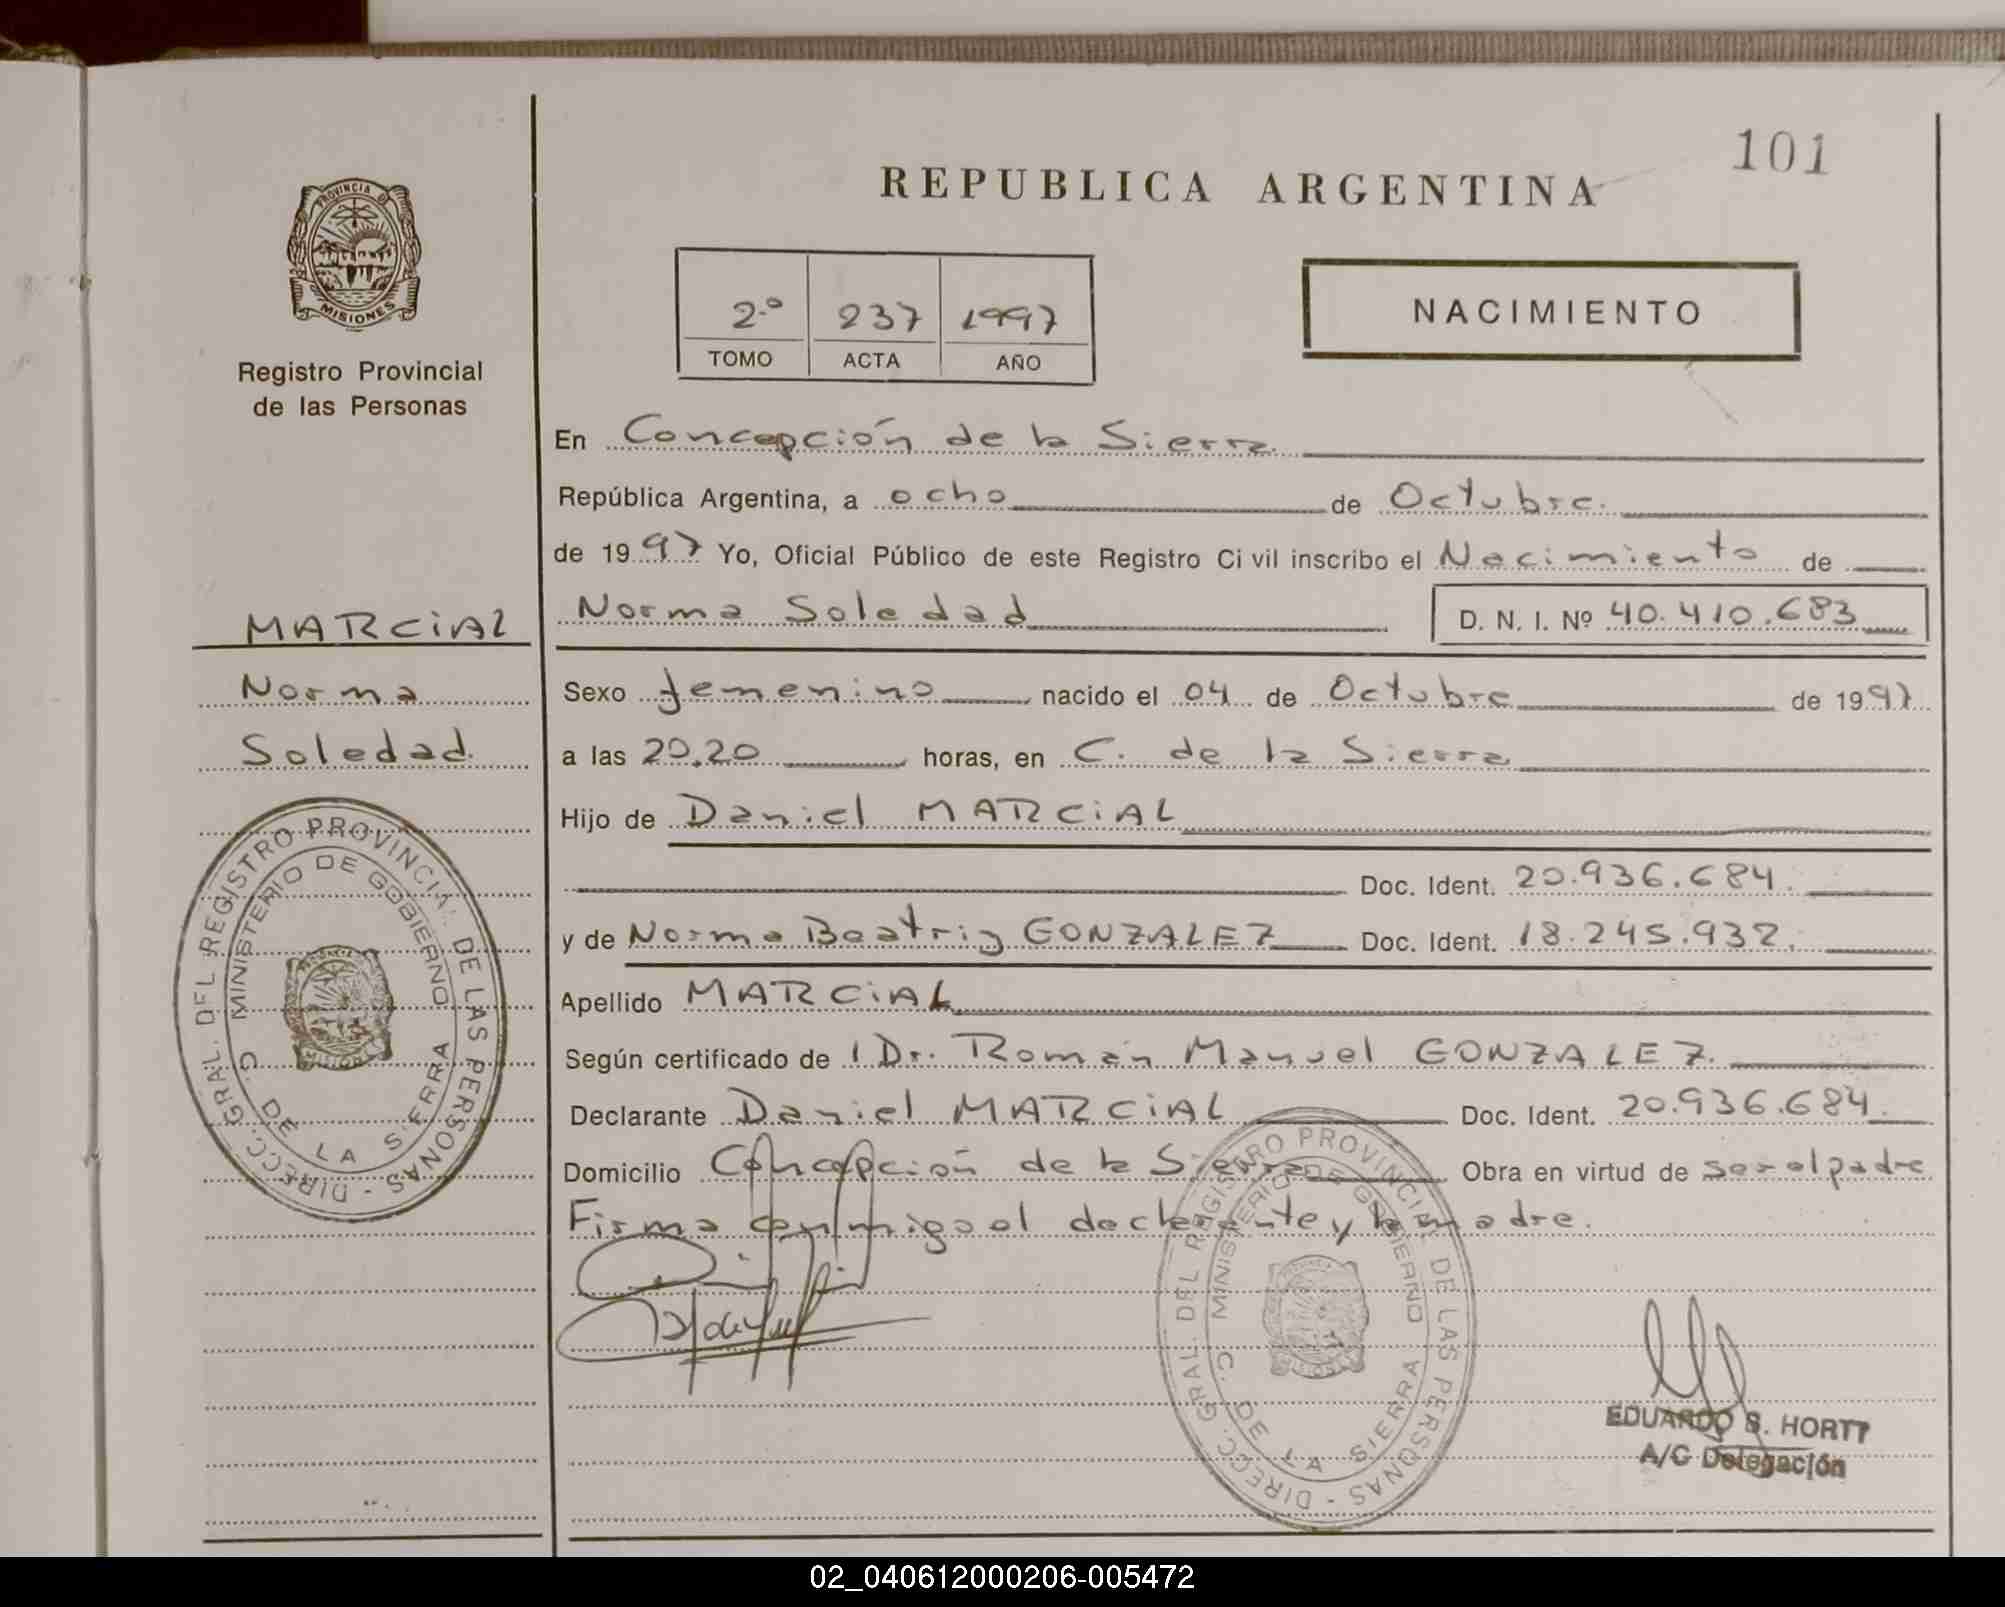 101
REPUBLICA ARGENTINA
PROVINCIA DE
MISIONES
Registro Provincial
de las Personas
2.º 237 1997
TOMO ACTA AÑO
NACIMIENTO
En Concepción de la Sierra
República Argentina, a ocho de Octubre.
de 1997 Yo, Oficial Público de este Registro Civil inscribo el Nacimiento de
Norma Soledad D. N. I. Nº 40.410.683
MARCiAL
Norma
Soledad
Sexo femenino nacido el 04 de Octubre de 1997
a las 20.20 horas, en C. de la Sierra
Hijo de Daniel MARCiAL
Doc. Ident. 20.936.684.
y de Norma Beatriz GONZALEZ Doc. Ident. 18.245.932.
Apellido MARCiAL
Según certificado de 1 Dr. Román Manuel GONZALEZ.
Declarante Daniel MARCiAL Doc. Ident. 20.936.684.
Domicilio Concepción de la Sierra Obra en virtud de ser el padre
Firma conmigo el declarante y la madre.
DIRECC. GRAL. DEL REGISTRO PROVINCIAL DE LAS PERSONAS -
MINISTERIO DE GOBIERNO
C. DE LA SIERRA
MISIONES
DIRECC. GRAL. DEL REGISTRO PROVINCIAL DE LAS PERSONAS -
MINISTERIO DE GOBIERNO
C. DE LA SIERRA
EDUARDO S. HORTT
A/C Delegación
02_040612000206-005472